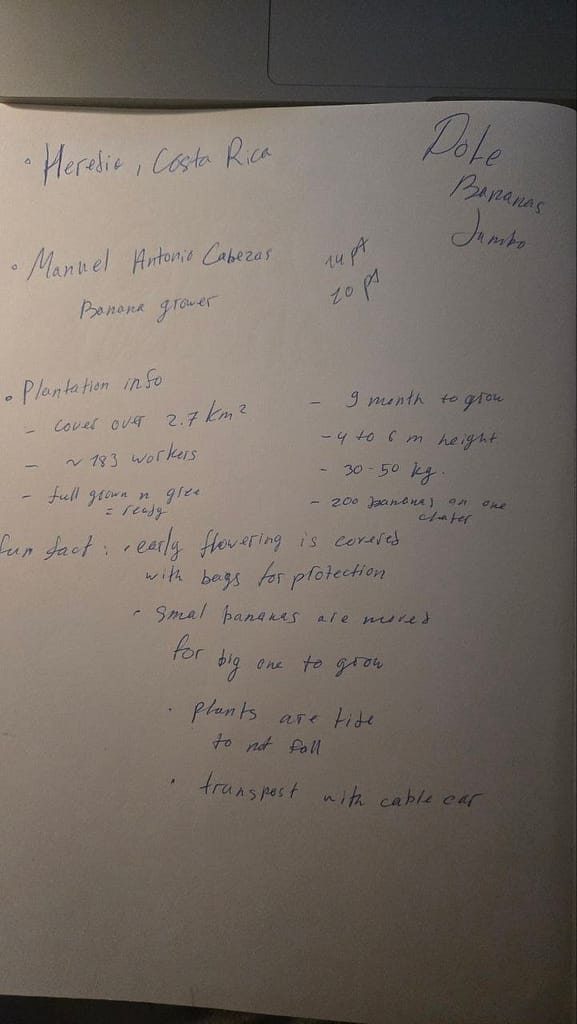 • Heredia, Costa Rica
Dole
Bananas
Jumbo
• Manuel Antonio Cabezas
Banana grower
14 pt
10 pt
• Plantation info
- cover over 2.7 km²
- ~ 183 workers
- full grown n
= ready
- 9 month to grow
- 4 to 6 m height
- 30-50 kg.
- 200 bananas on one
cluster
fun fact: • early flowering is covered
with bags for protection
• smal bananas are moved
for big one to grow
• plants are tide
to not fall
• transport with cable car